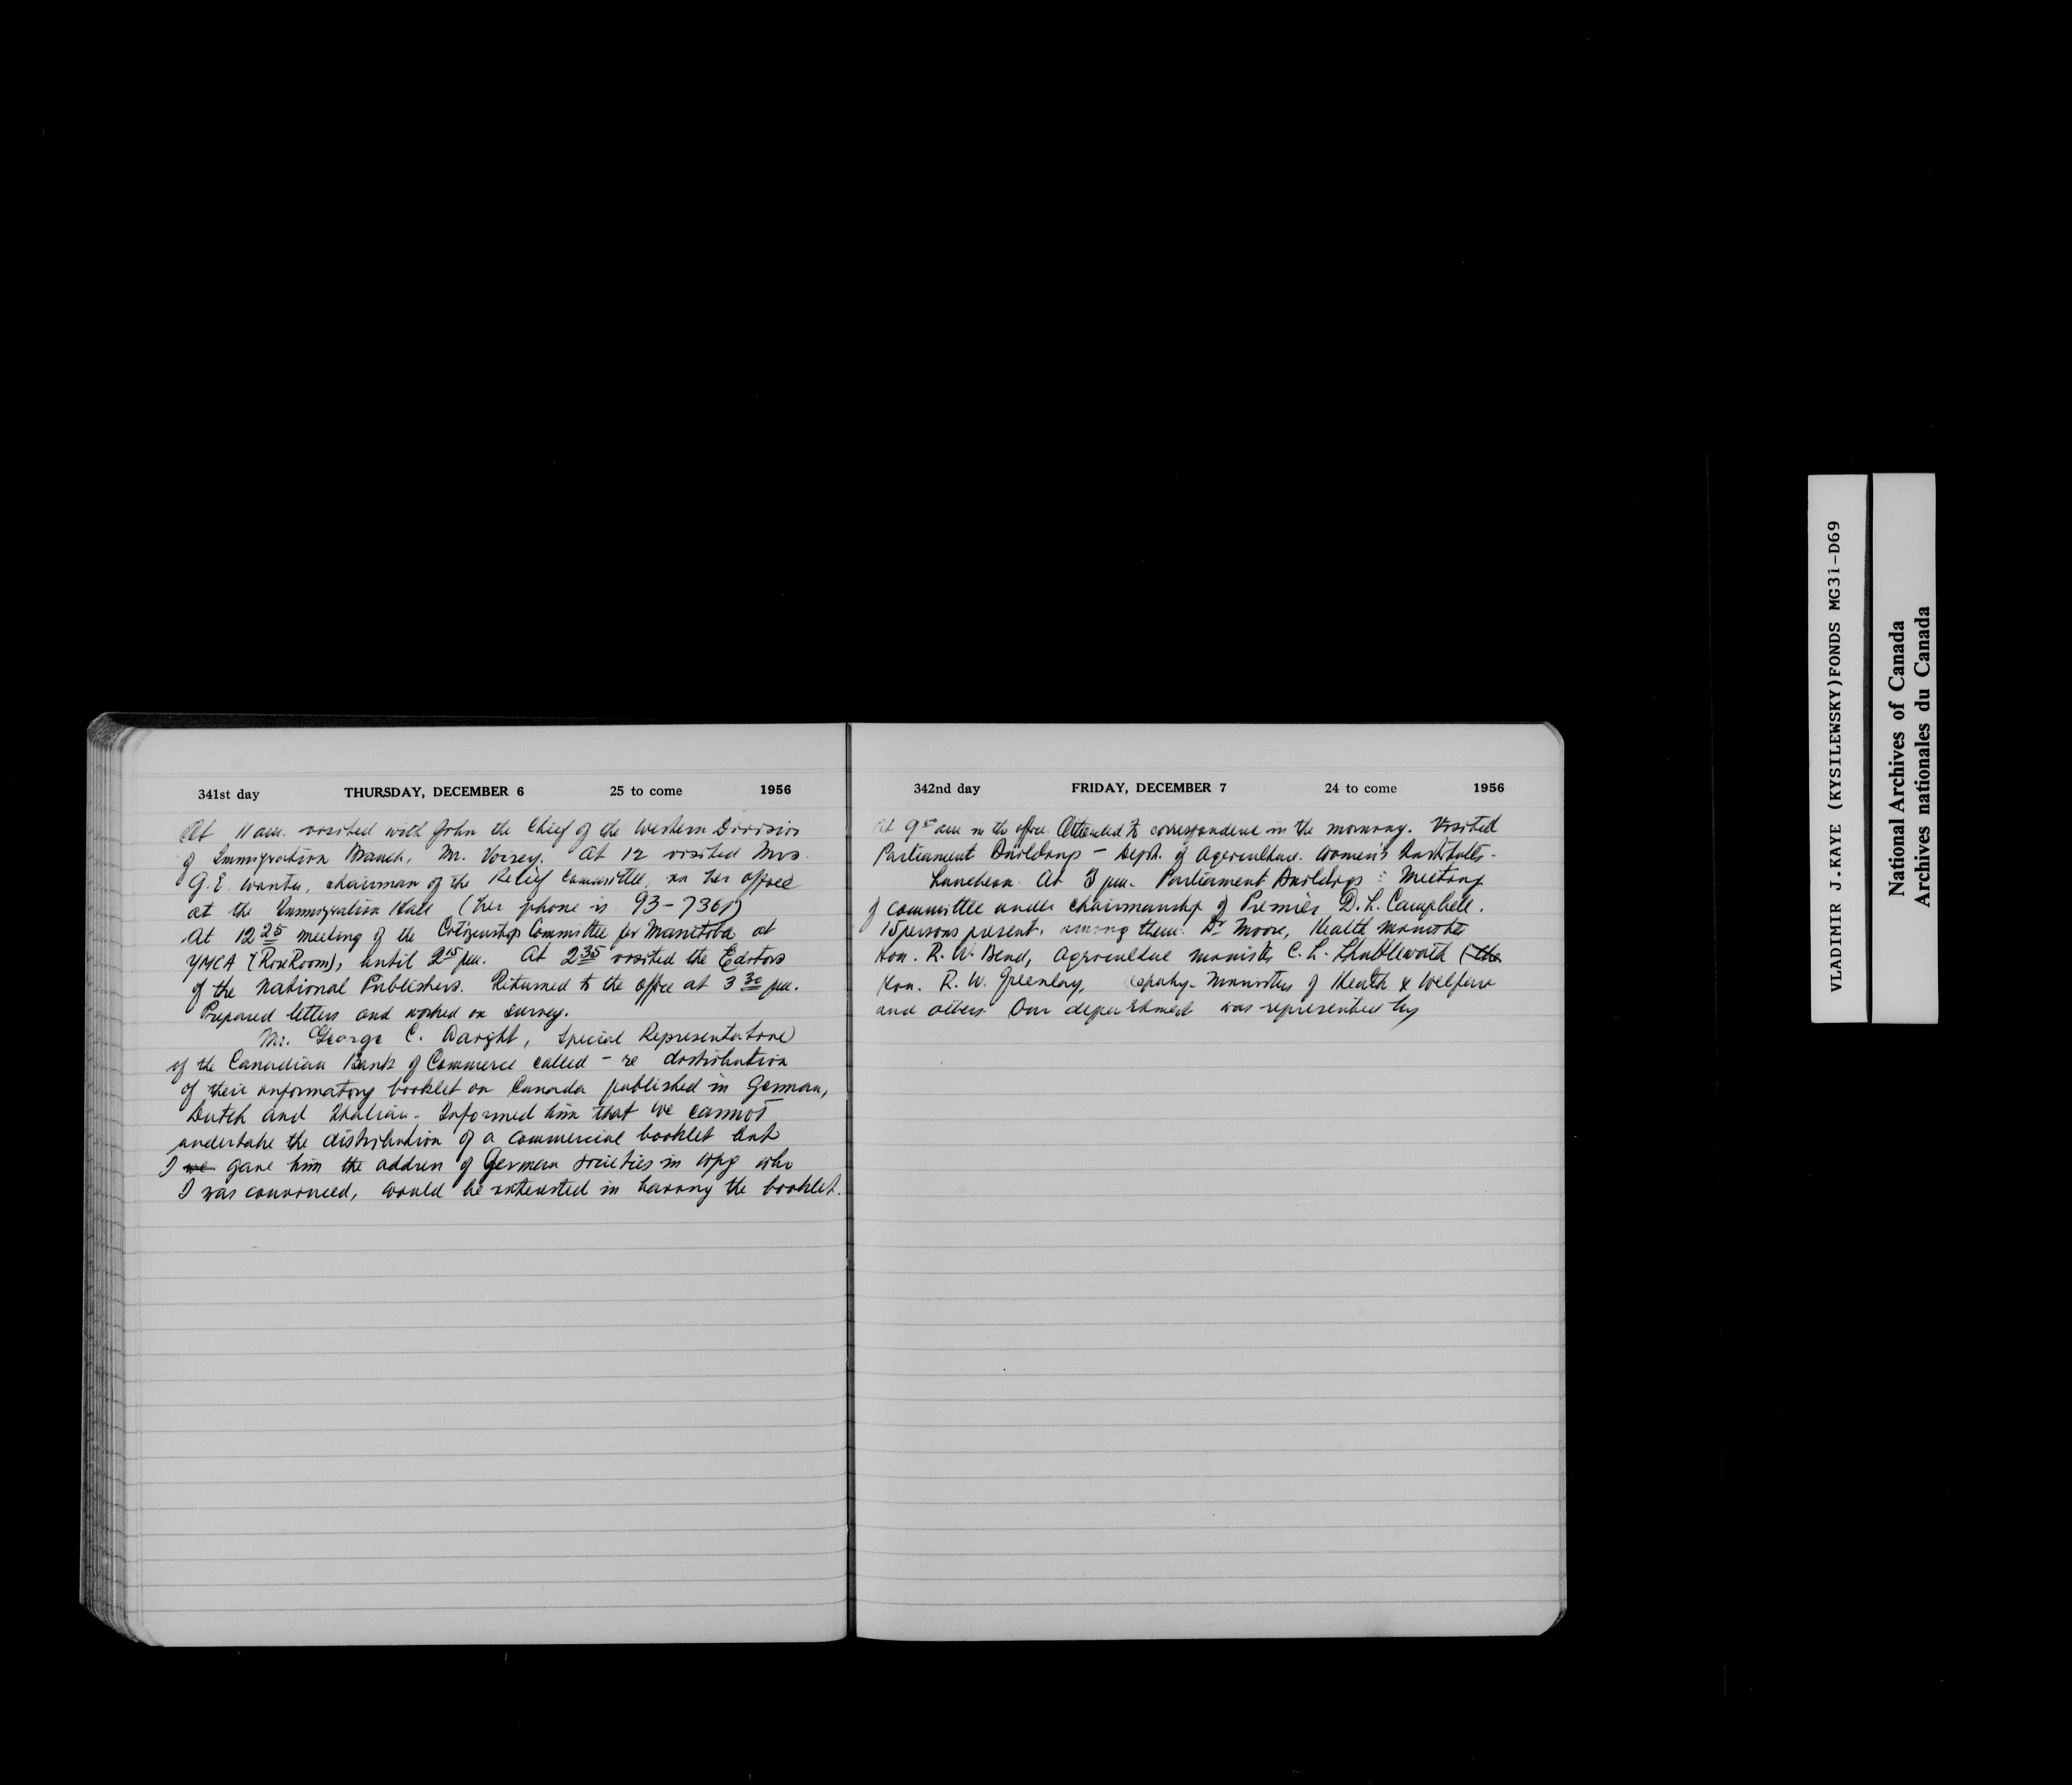 341st day THURSDAY, DECEMBER 6 25 to come 1956
At 11 am. visited with John the Chief of the Western Division
of Immigration Branch, Mr. Voisey. At 12 visited Mrs.
G.E. chairman of the Relief Committee, in her office
at the Immigration Hall (her phone is 93-7361)
At 12 25 meeting of the Citizenship Committee for Manitoba at
YMCA (Rose Room), until 2 15 pm. At 2 35 visited the Editors
of the National Publishers. Returned to the office at 3 30 pm.
Prepared letters and worked on survey.
Mr. George C. Special Representative
of the Canadian Bank of Commerce called - re distribution
of their informatory booklet on Canada published in German,
Dutch and Italian. Informed him that we cannot
undertake the distribution of a commercial booklet but
I we gave him the address of German societies in Wpg who
I was convinced, would be interested in having the booklet.
342nd day FRIDAY, DECEMBER 7 24 to come 1956
At 9 am in the office. Attended to correspondence in the morning. Visited
Parliament Buildings - Dept. of Agriculture. Women's Institutes.
Luncheon. At 3 pm. Parliament Buildings : Meeting
of committee under chairmanship of Premier D.L. Campbell.
15 persons present, among them: Dr Moore, Health minister
Hon. R. W. Bend, Agriculture minister C. L. Shuttleworth (the
Hon. R. W. Greenlay, deputy-ministers of Health & Welfare
and others. Our department was represented by
VLADIMIR J.KAYE (KYSILEWSKY)FONDS MG31-D69
National Archives of Canada
Archives nationales du Canada